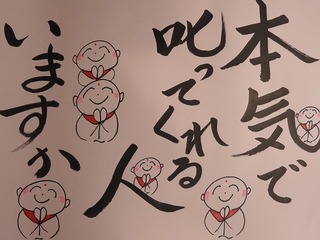 本気で
叱ってくれる
人
いますか